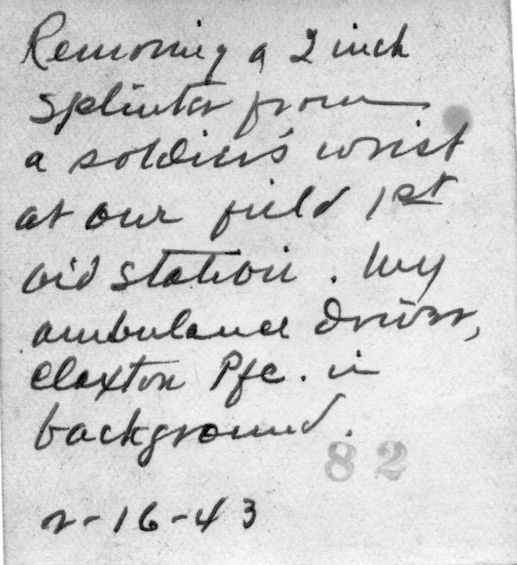 Removing a 2 inch
splinter from
a soldier's wrist
at our field 1st
aid station. My
ambulance driver,
Claxton Pfc. in
background.
82
2-16-43